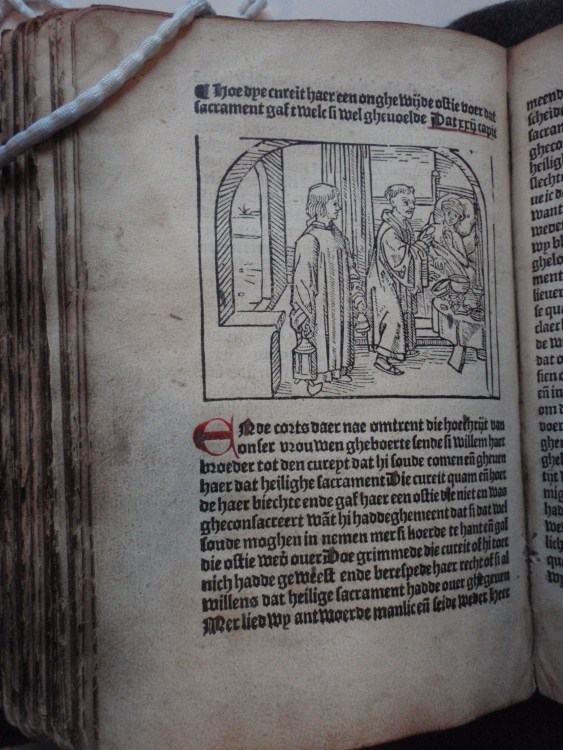 ¶ Hoe dye cureit haer een onghewijde ostie voer dat
sacrament gaf twelc si wel gheuoelde Dat xxij capit
ENde corts daer nae omtrent die hoechtijt van
onser vrouwen gheboerte sende si willem haer
broeder tot den cureyt dat hi soude comen eñ gheuen
haer dat heilighe sacrament Die cureit quam eñ hoer
de haer biechte ende gaf haer een ostie die niet en was
gheconsacreert wãt hi hadde ghement dat si dat wel
soude moghen in nemen mer si keerde te hant eñ gaf
die ostie weð ouer Doe grimmede die cureit of hi toer
nich hadde geweest ende berespede haer recht of si al
willens dat heilige sacrament hadde ouer ghegeuen
Mer liedwy antwoerde manlic eñ seide weder Heer
meend
scheide
sacram
gheco
heiligh
slechte
ue ic d
want
weder
wy bl
ghelo
ment
lieuer
se qua
claerl
de w
dat o
sien
eñ in
om d
voer